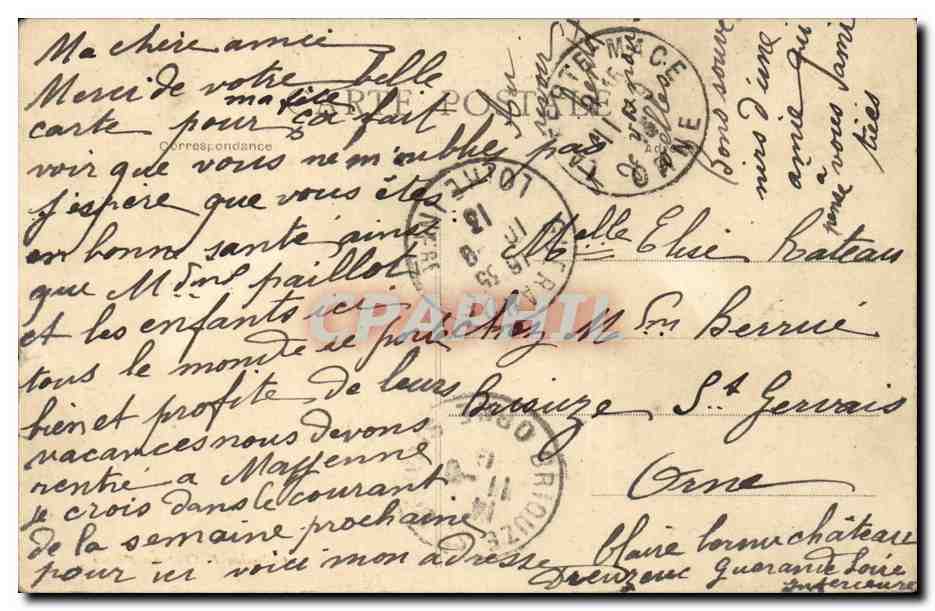 Ma chère amie
Merci de votre belle
carte pour ma fête ça fait
voir que vous ne m'oublié pas
j'espère que vous êtes
en bonne santé ainsi
que M dme paillot
et les enfants ici
tous le monde se porte
bien et profite de leurs
vacances nous devons
rentré a Mayenne
je crois dans le courant
de la semaine prochaine
pour ici voici mon adresse
Claire Cornu château
Guerande Loire
Inferieure
CARTE POSTALE
Correspondance
Melle Elise Rateau
chez M dm Berrué
Briouze St Gervais
Orne
Bons souve
nirs d'une
amie qui
pense à vous amit
tiés
LA FERTE-MACE
ORNE
BRIOUZE
ORNE
CPAPHIL